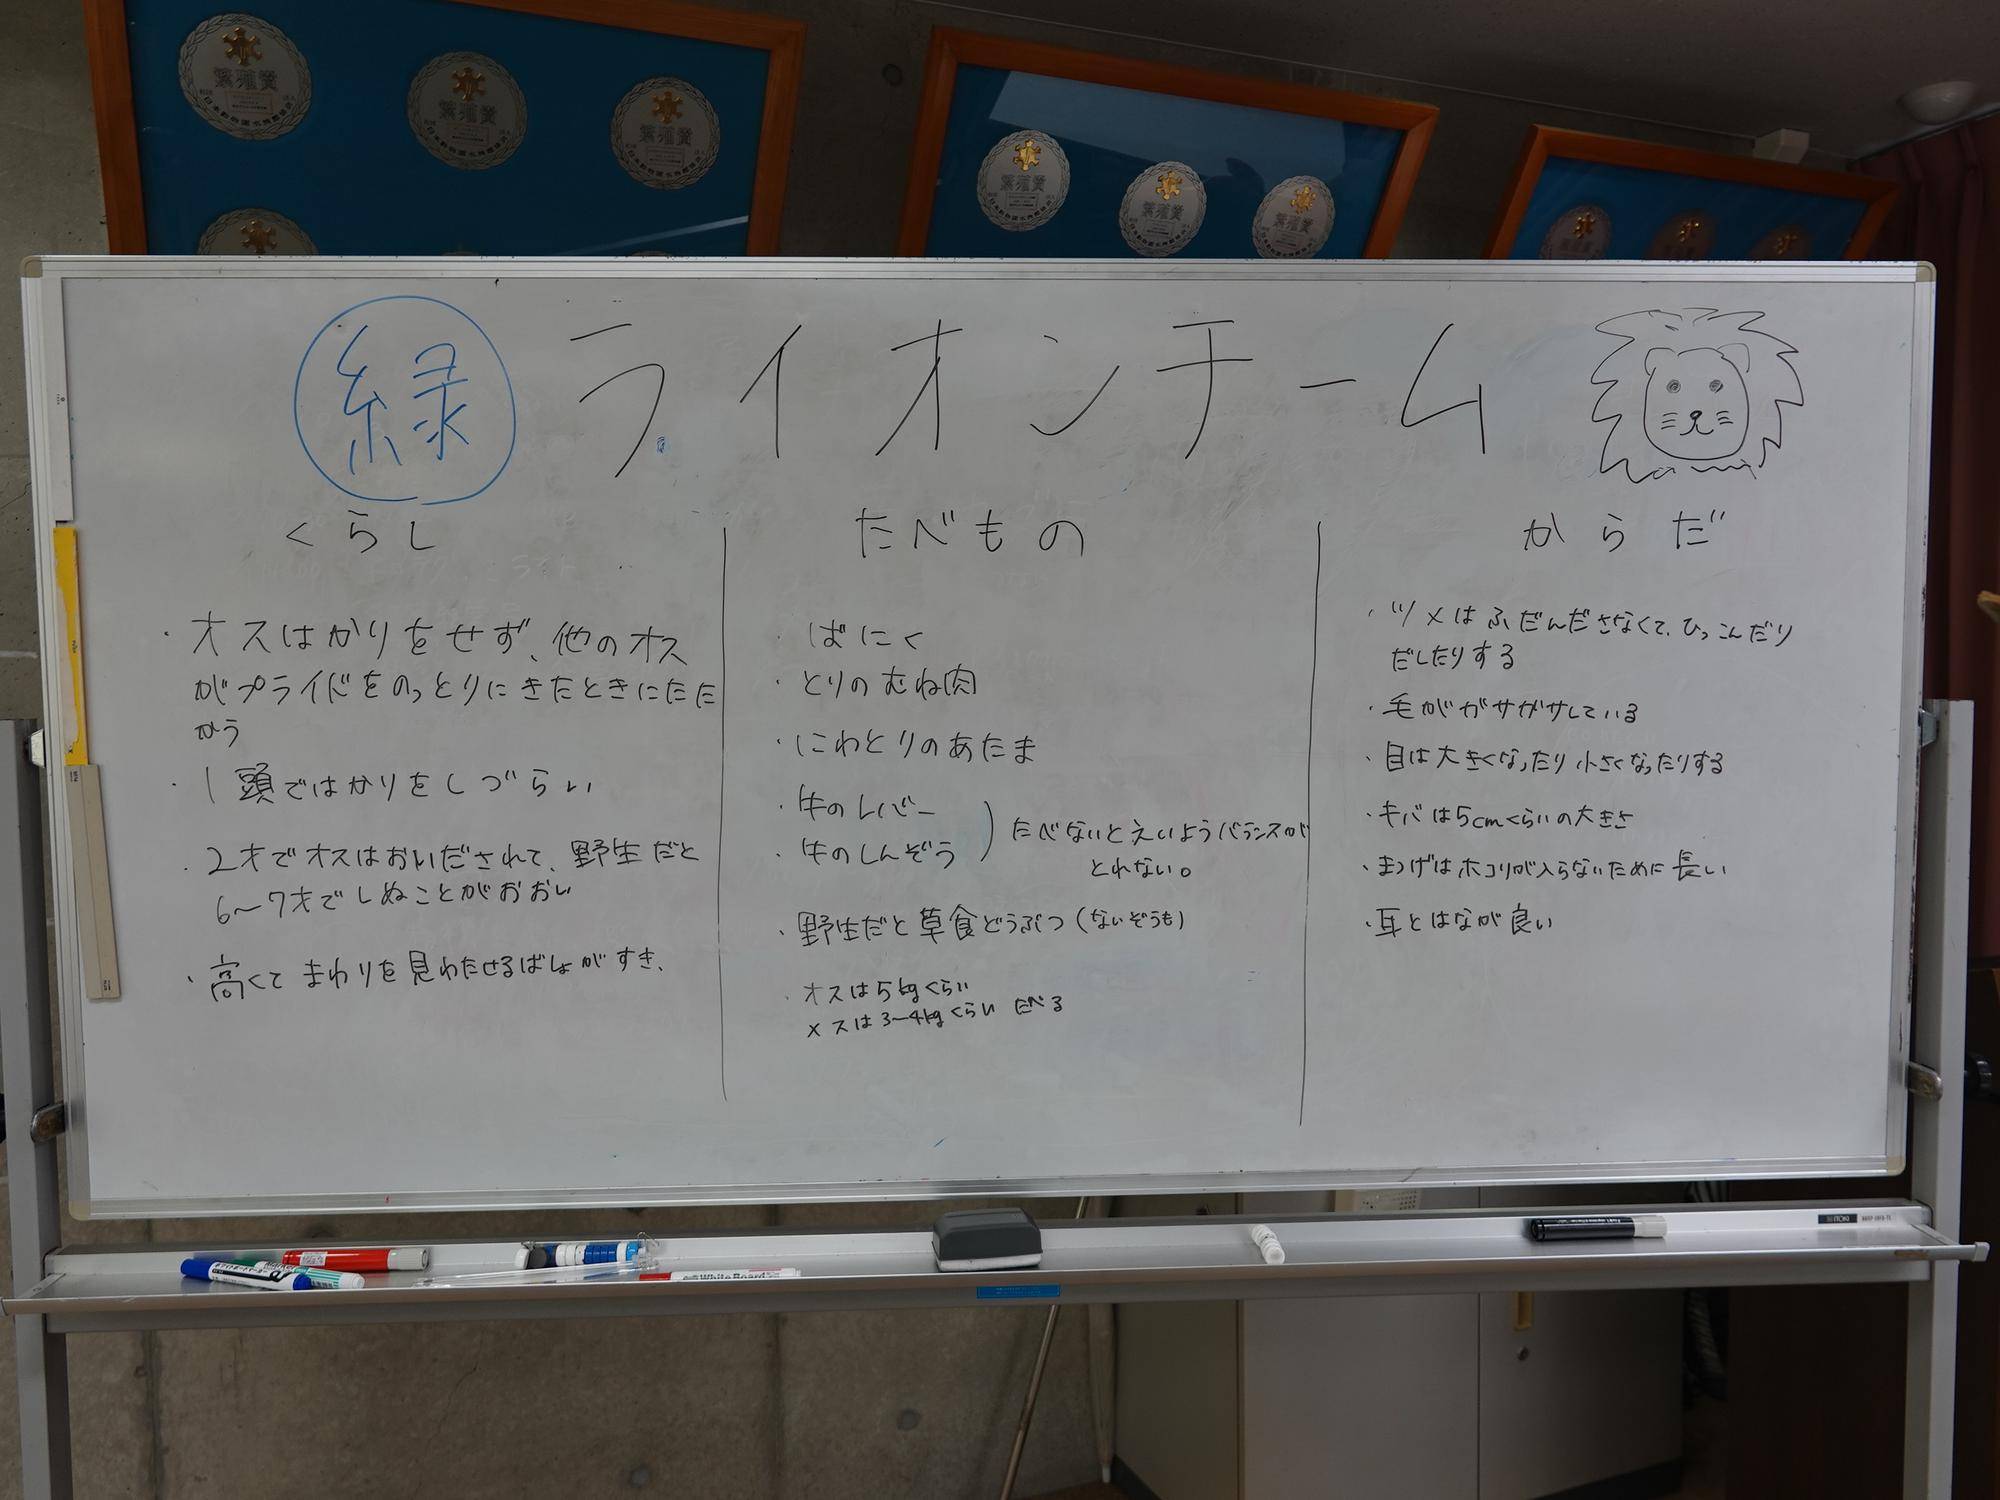 繁殖賞
日本動物園水族館協会
繁殖賞
繁殖賞
繁殖賞
繁殖賞
繁殖賞
緑 ライオンチーム
くらし
・オスはかりをせず、他のオス
がプライドをのっとりにきたときにたた
かう
・1頭ではかりをしづらい
・2才でオスはおいだされて、野生だと
6〜7才でしぬことがおおい
・高くてまわりを見わたせるばしょがすき、
たべもの
・ばにく
・とりのむね肉
・にわとりのあたま
・牛のレバー
・牛のしんぞう
たべないとえいようバランスが
とれない。
・野生だと草食どうぶつ(ないぞうも)
・オスは5kgくらい
メスは3〜4kgくらい たべる
からだ
・ツメはふだんださなくて、ひっこんだり
だしたりする
・毛がガサガサしている
・目は大きくなったり小さくなったりする
・キバは5cmくらいの大きさ
・まつげはホコリが入らないために長い
・耳とはなが良い
WhiteBoard
ITOKI